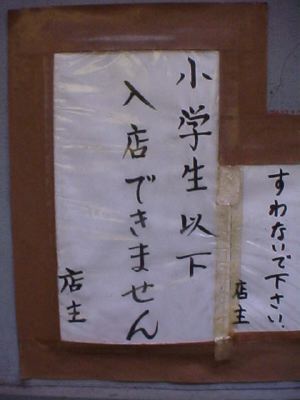 小学生以下
入店できません
店主
すわないで下さい.
店主